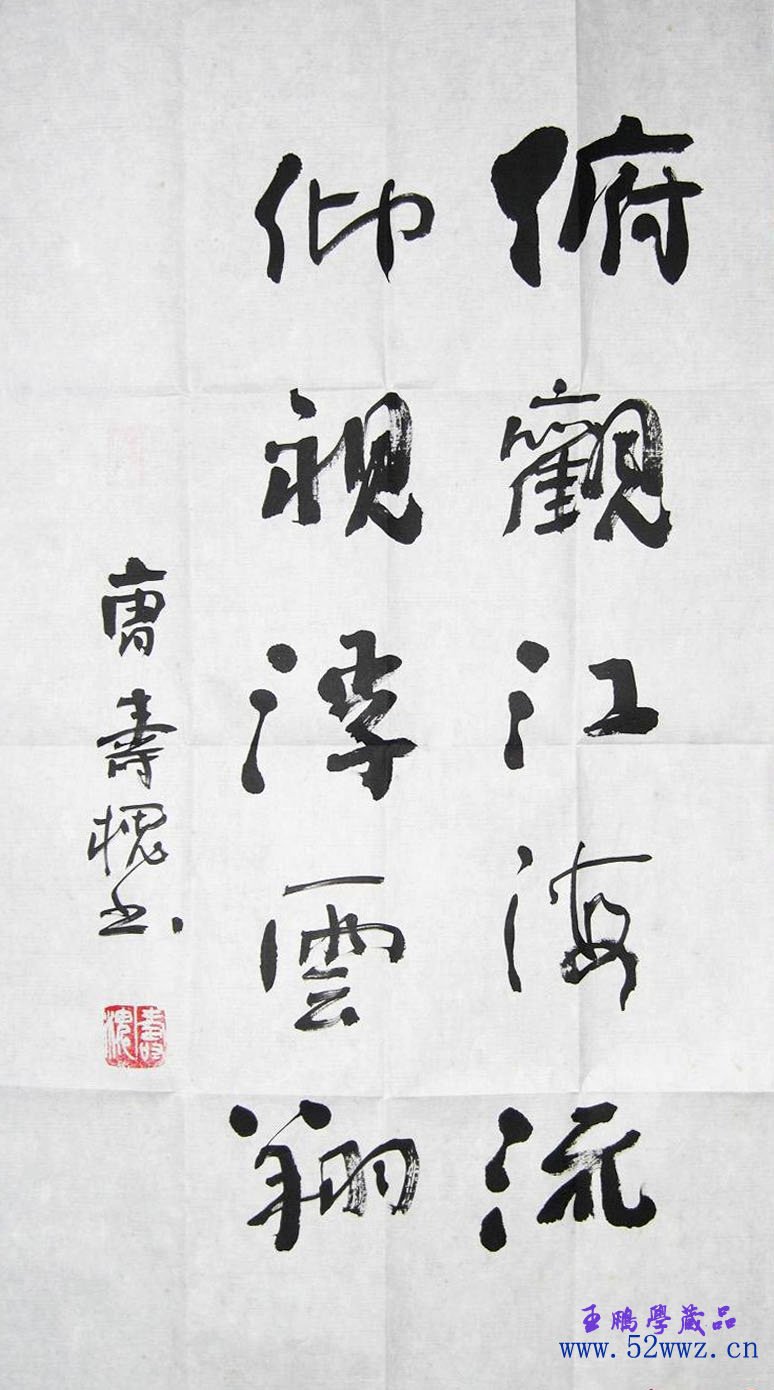 俯觀江海流
仰視浮雲翔
曹壽槐书
壽槐
王鵬學藏品
www.52wwz.cn